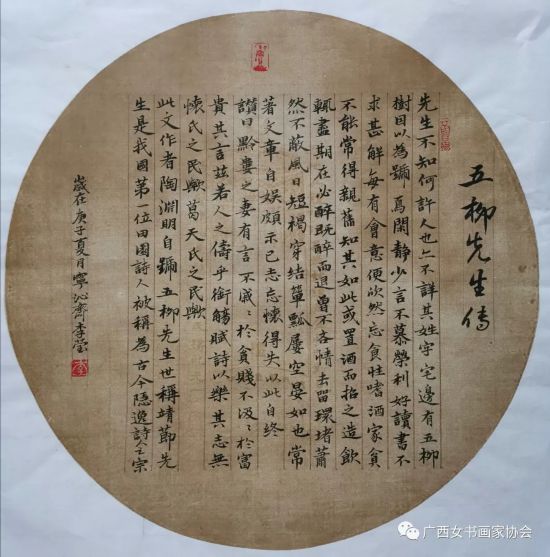 五柳先生傳
先生不知何許人也亦不詳其姓字宅邊有五柳
樹因以為號焉閑靜少言不慕榮利好讀書不
求甚解每有會意便欣然忘食性嗜酒家貧
不能常得親舊知其如此或置酒而招之造飲
輒盡期在必醉既醉而退曾不吝情去留環堵蕭
然不蔽風日短褐穿結簞瓢屢空晏如也常
著文章自娛頗示己志忘懷得失以此自終
讚曰黔婁之妻有言不戚〻於貧賤不汲〻於富
貴其言茲若人之儔乎銜觴賦詩以樂其志無
懷氏之民歟葛天氏之民歟
此文作者陶淵明自號五柳先生世稱靖節先
生是我國第一位田園詩人被稱為古今隱逸詩人之宗
歲在庚子夏月寧沁齋李瑩
广西女书画家协会